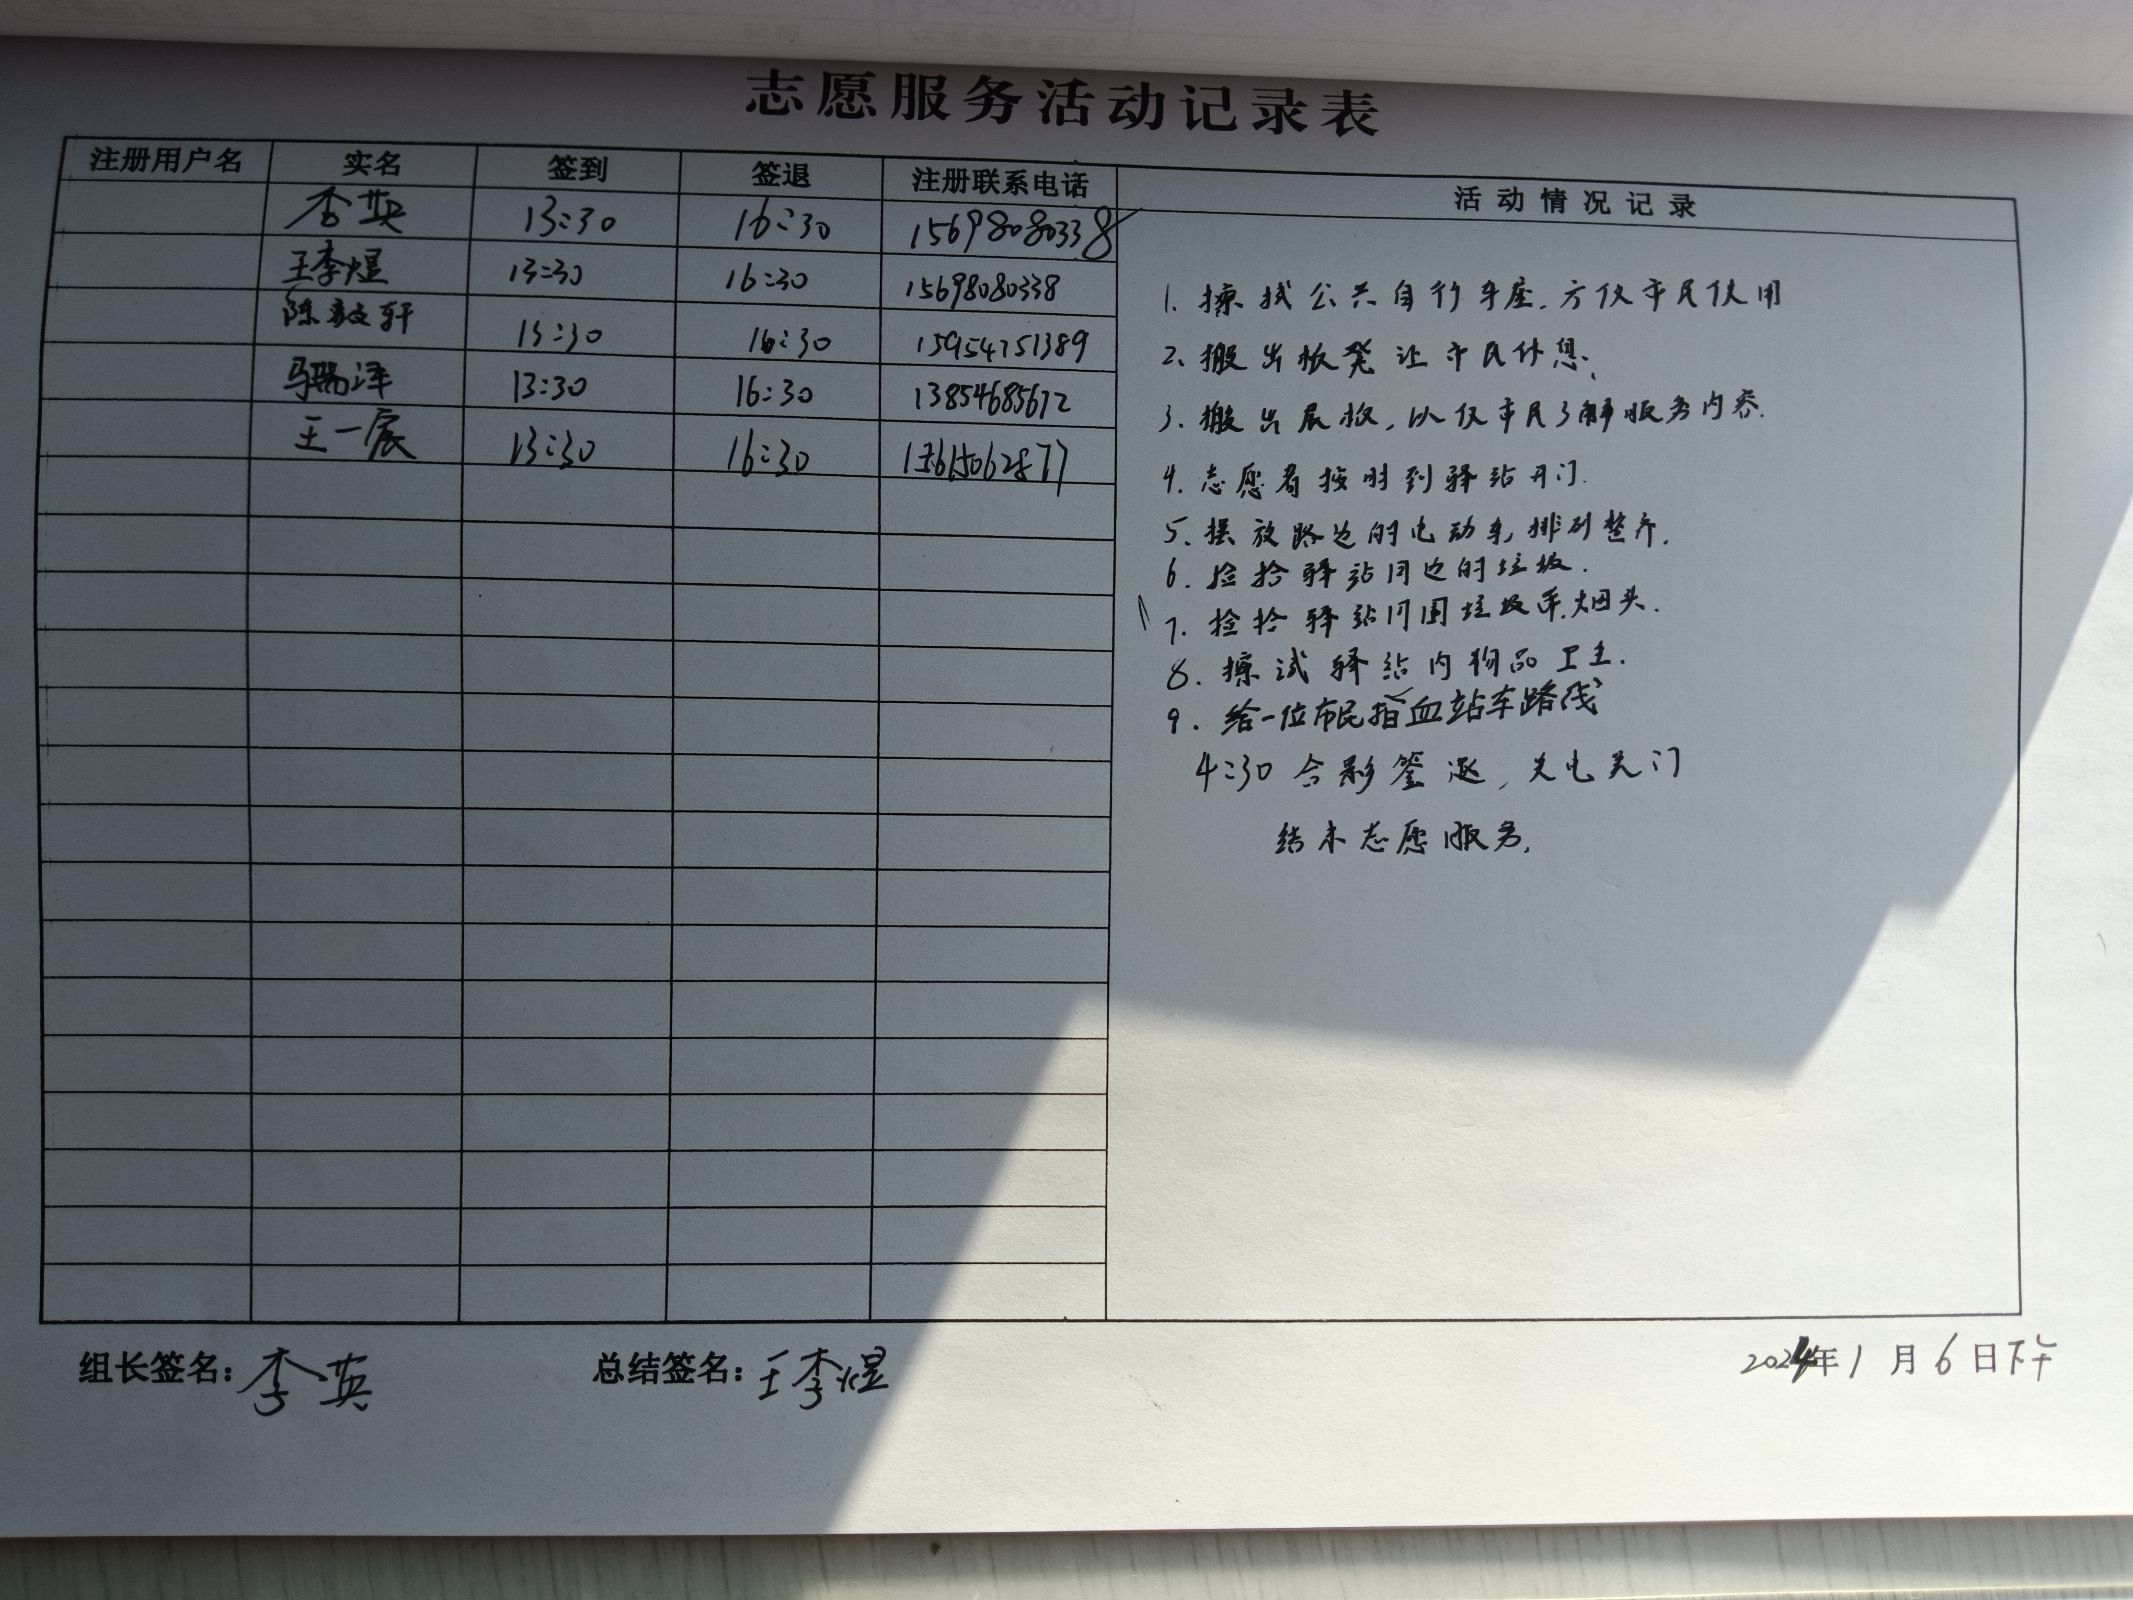 志愿服务活动记录表
注册用户名 实名 签到 签退 注册联系电话 活动情况记录
李英 13:30 16:30 15698080338
王李煜 13:30 16:30 15698080338
陈毅轩 13:30 16:30 15954751389
马瑞泽 13:30 16:30 13854685672
王一宸 13:30 16:30 15615062877
1. 擦拭公共自行车座.方便市民使用
2、搬出板凳让市民休息、
3. 搬出展板,以便市民了解服务内容.
4. 志愿者按时到驿站开门.
5. 摆放路边的电动车,排列整齐.
6. 捡拾驿站周边的垃圾.
7. 捡拾驿站门周垃圾和烟头.
8. 擦试驿站内物品卫生.
9. 给一位市民指血站车路线
4:30合影签退,关电关门
结束志愿服务.
组长签名: 李英 总结签名: 王李煜 2024年1月6日下午